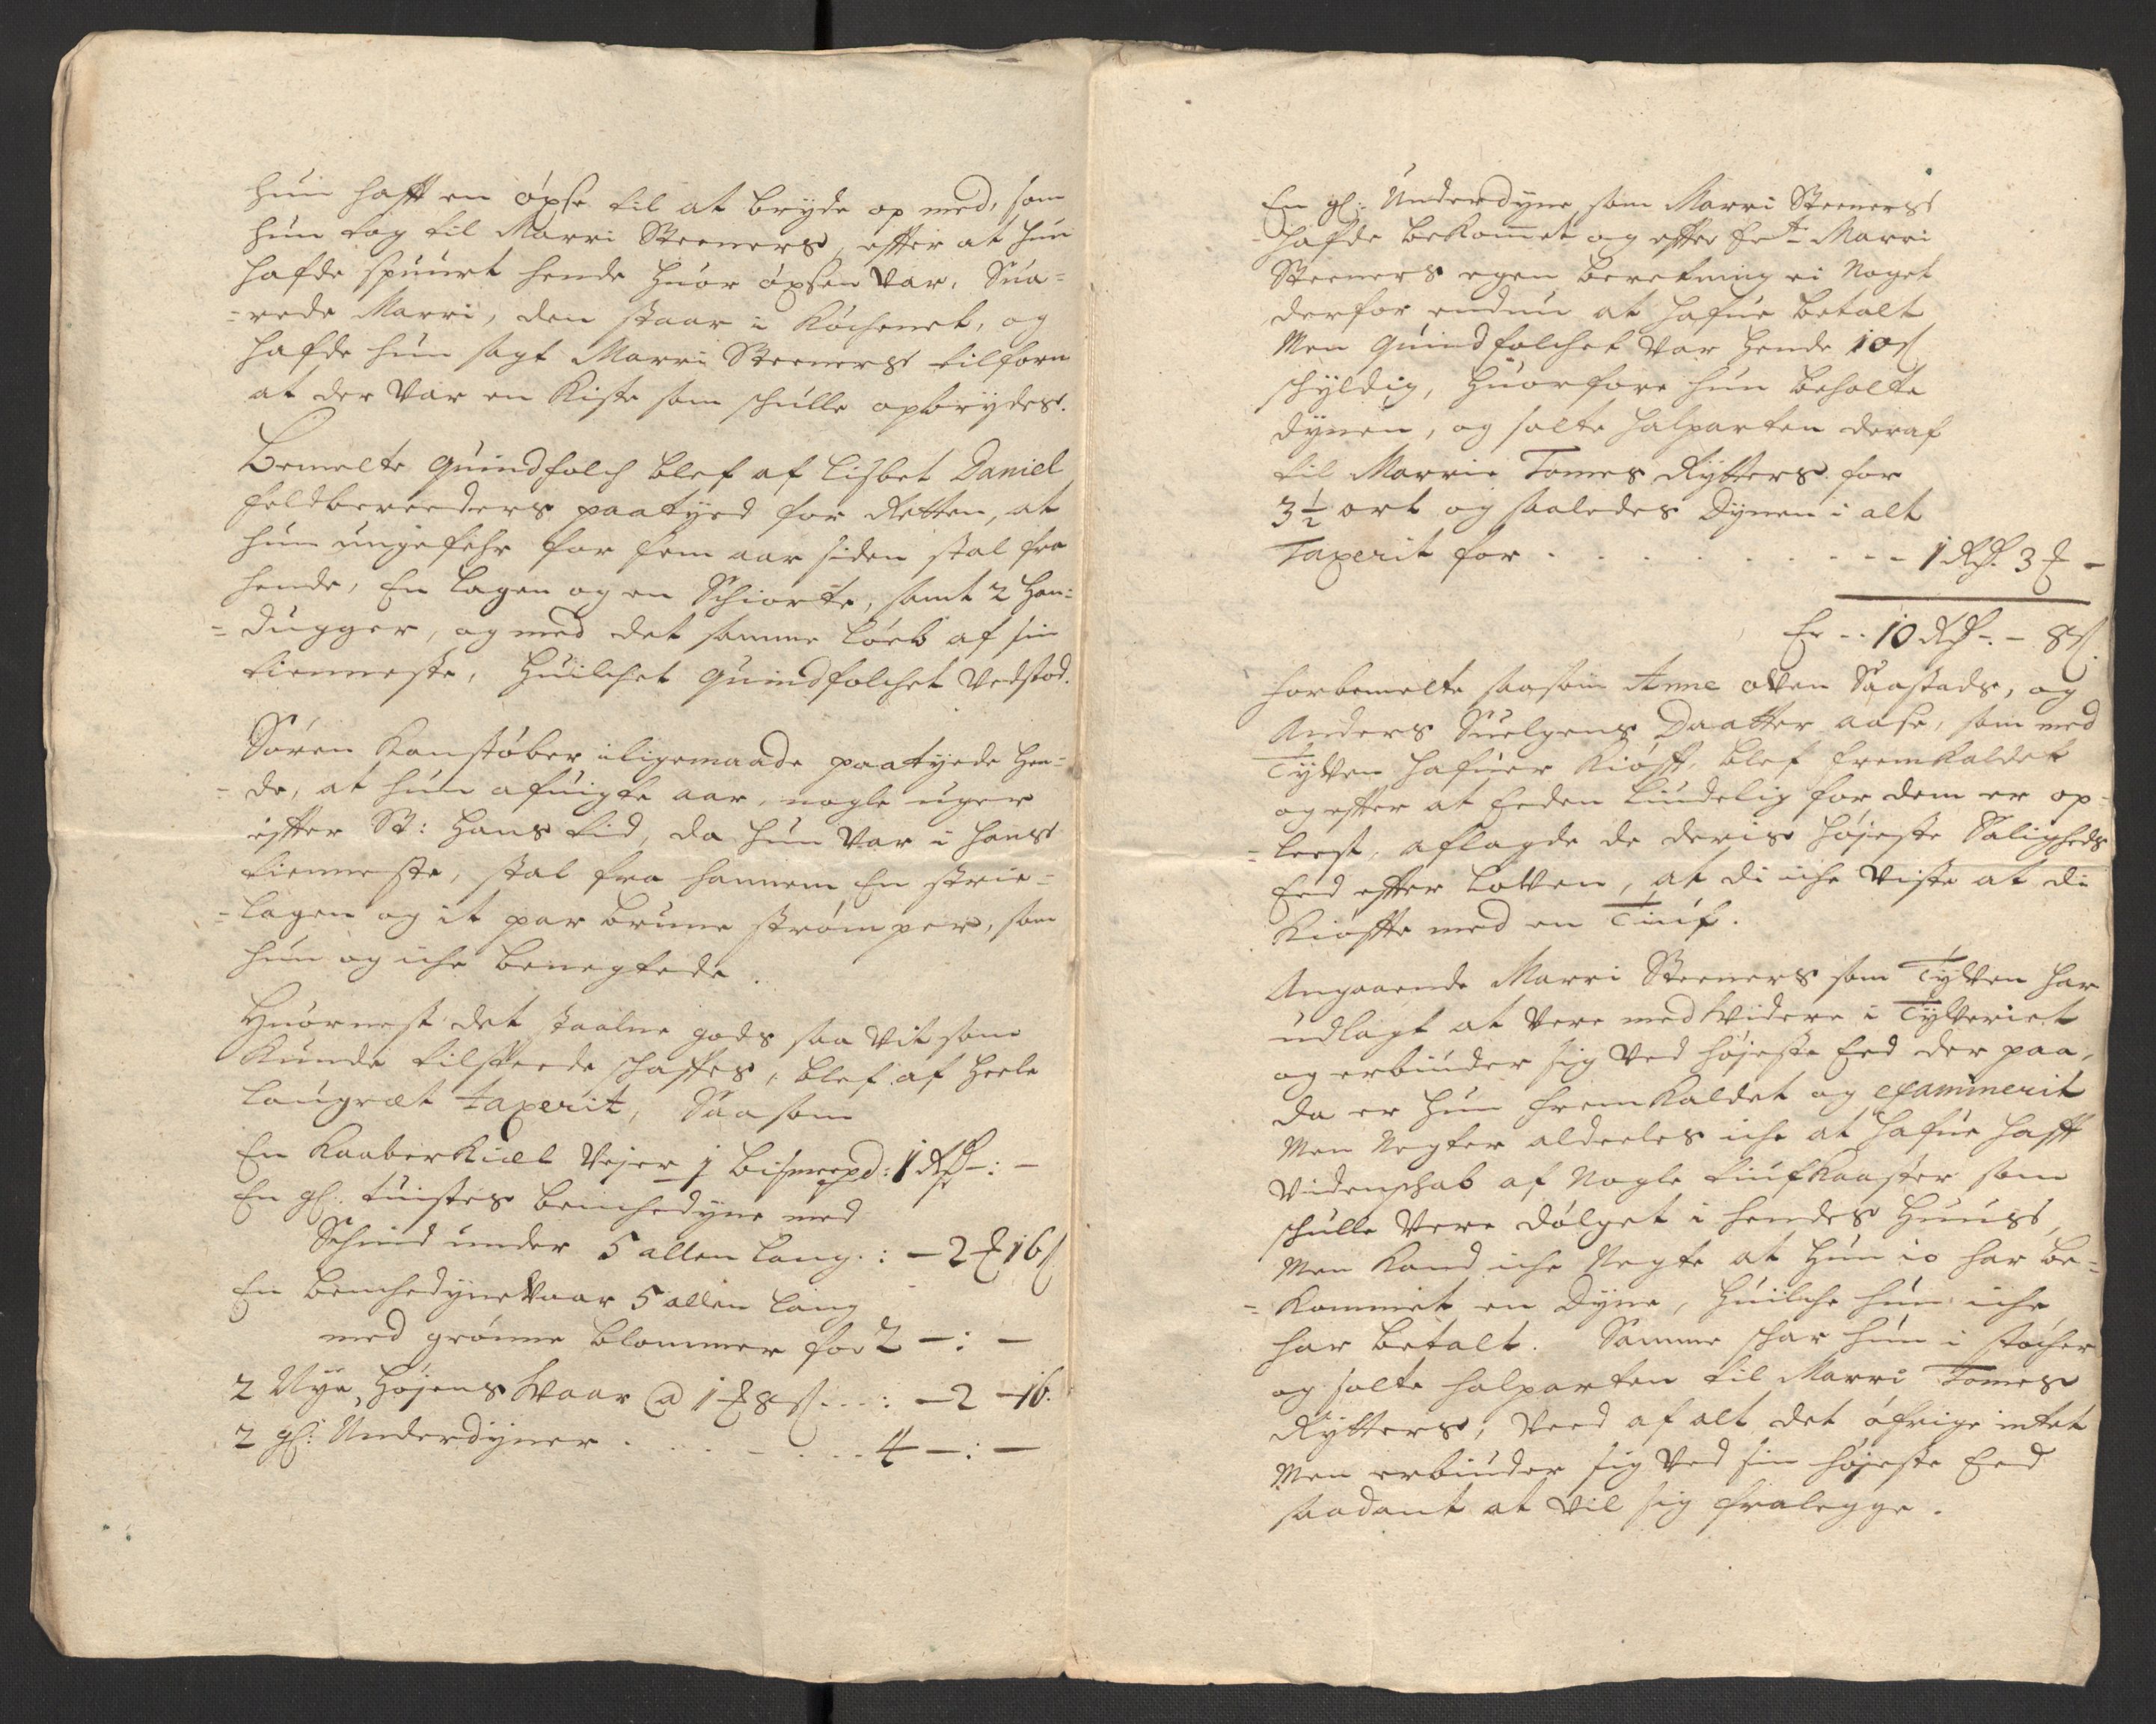 hun hafft en øxse til at bryde op med, som
hun tog til Marri Steeners, effter at hun
hafde spuurt hende huor øxsen var, Sua-
-rede Marri, den staar i Køchenet, og
hafde hun sagt Marri Steeners tilforn
at der var en Kiste som schulle opbrydes.
Bemelte quindfolch blef af Lisbet Daniel
feldbereeders paatyed for Retten, at
hun ungefehr for fem aar siden stal fra
hende, En lagen og en Schiorte, samt 2 Han-
-dugger, og med det samme løeb af sin
tienneste, huilchet quindfolchet vedstod.
Søren Kanstøber iligemaade paatyede hen-
-de, at hun afuigte aar, nogle uger
effter St: Hans tid, da hun var i hans
tienneste, stal fra hannem En strie-
-lagen og it par brune strømper, som
hun og iche benegtede.
Huornest det staalne gods saa vit som
kunde tilstæde schaffes, blef af heele
laugræt taxerit, Saasom
En Kaaberkiæl veyer 1 bismerpd: 1 Rdr -:-
En gl: tuistes benchedyne med
Schind under 5 allen lang.: - 2 ₰ 16 s
En benchedynevaar 5 allen lang
med grønne blommer for 2 -:-
2 Nye, høyens vaar @ 1 ₰ 8 s ...: - 2 - 16.
2 gl: Underdyner . . . - . . . 4 -:-
En gl: Underdyne som Marri Steeners
hafde bekommet og effter Marri
Steeners egen beretning ei noget
derfor endnu at hafue betalt
Men quindfolchet var hende 10 s
schyldig, huorfore hun beholte
dynen, og solte halparten deraf
til Marrie Tomes Rytters for
3 1/2 ort og saaledes Dynen i alt
Taxerit for . . . . . . . - - - 1 Rdr. 3 ₰ -
Er - - 10 Rdr - . - 8 s.
forbemelte saasom Anne Saastads, og
Anders Suelgens Daatter aase, som med
Tyven hafuer Kiøfft, blef fremkaldet
og effter at Eeden liudelig for dem er op-
-leest, aflagde de deris høyeste Saligheds
Eed effter loven, at di iche viste at di
Kiøffte med en Tiuf.
Angaaende Marri Steeners som Tyven har
udlagt at vere med videre i Tyveriet
og erbiuder sig ved høyeste Eed der paa,
da er hun fremkaldet og examinerit
Men negter aldeeles iche at hafue hafft
videnschab af nogle tiufkaaster som
schulle vere dølget i hendes huus,
Men kand iche negte at hun io har be-
-kommet en dyne, huilche hun iche
har betalt. Samme schar hun i støcher
og solte halparten til Marri Tomes
Rytters, veed af alt det øfrige intet
Men erbiuder sig ved sin høyeste Eed
saadant at vil sig fralegge.